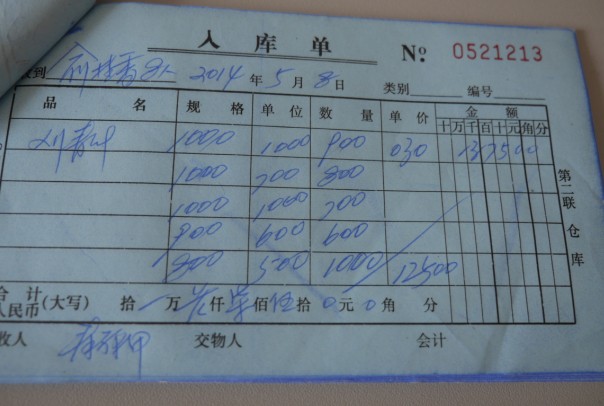 入库单 No. 0521213
收到 2014年5月8日 类别 编号
品名 规格 单位 数量 单价 金额
十万千百十元角分
1000 1000 900 030 137500
1000 700 800
1000 1000 700
900 600 600
800 500 1000 12500
第二联 仓库
合计人民币(大写) 拾一万 仟 佰伍拾0元0角 分
收人 交物人 会计